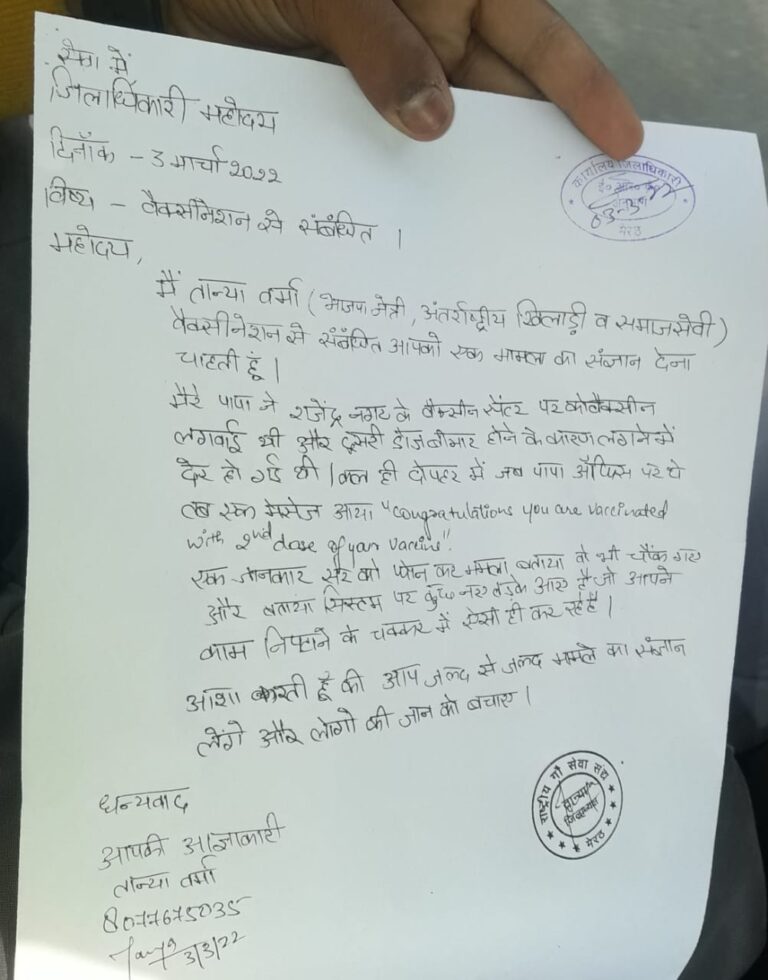 सेवा में
जिलाधिकारी महोदय
दिनाँक - 3 मार्चा 2022
विषय - वैक्सीनेशन से संबंधित ।
महोदय,
मैं तान्या वर्मा (भाजपा नेत्री, अंतर्राष्ट्रीय खिलाड़ी व समाजसेवी)
वैक्सीनेशन से संबंधित आपको एक मामला का संज्ञान देना
चाहती हूँ ।
मेरे पापा ने राजेंद्र नगर के वैक्सीन सेंटर पर कोवैक्सीन
लगवाई थी और दूसरी डोज बीमार होने के कारण लगने में
देर हो गई थी । कल ही दोपहर में जब पापा ऑफिस पर थे
तब एक मेसेज आया "Congratulations you are vaccinated
with 2nd dose of your vaccine".
एक जानकार सर को फोन कर मामला बताया वो भी चौंक गए
और बताया सिस्टम पर कुछ नए लड़के आए है जो अपने
काम निपटाने के चक्कर में ऐसा ही कर रहे है ।
आशा करती हूँ की आप जल्द से जल्द मामले का संज्ञान
लेंगे और लोगो की जान को बचाए ।
धन्यवाद
आपकी आज्ञाकारी
तान्या वर्मा
8077675035
3/3/22
कार्यालय जिलाधिकारी
मेरठ
राष्ट्रीय गौ सेवा संघ
जिलाध्यक्ष
मेरठ